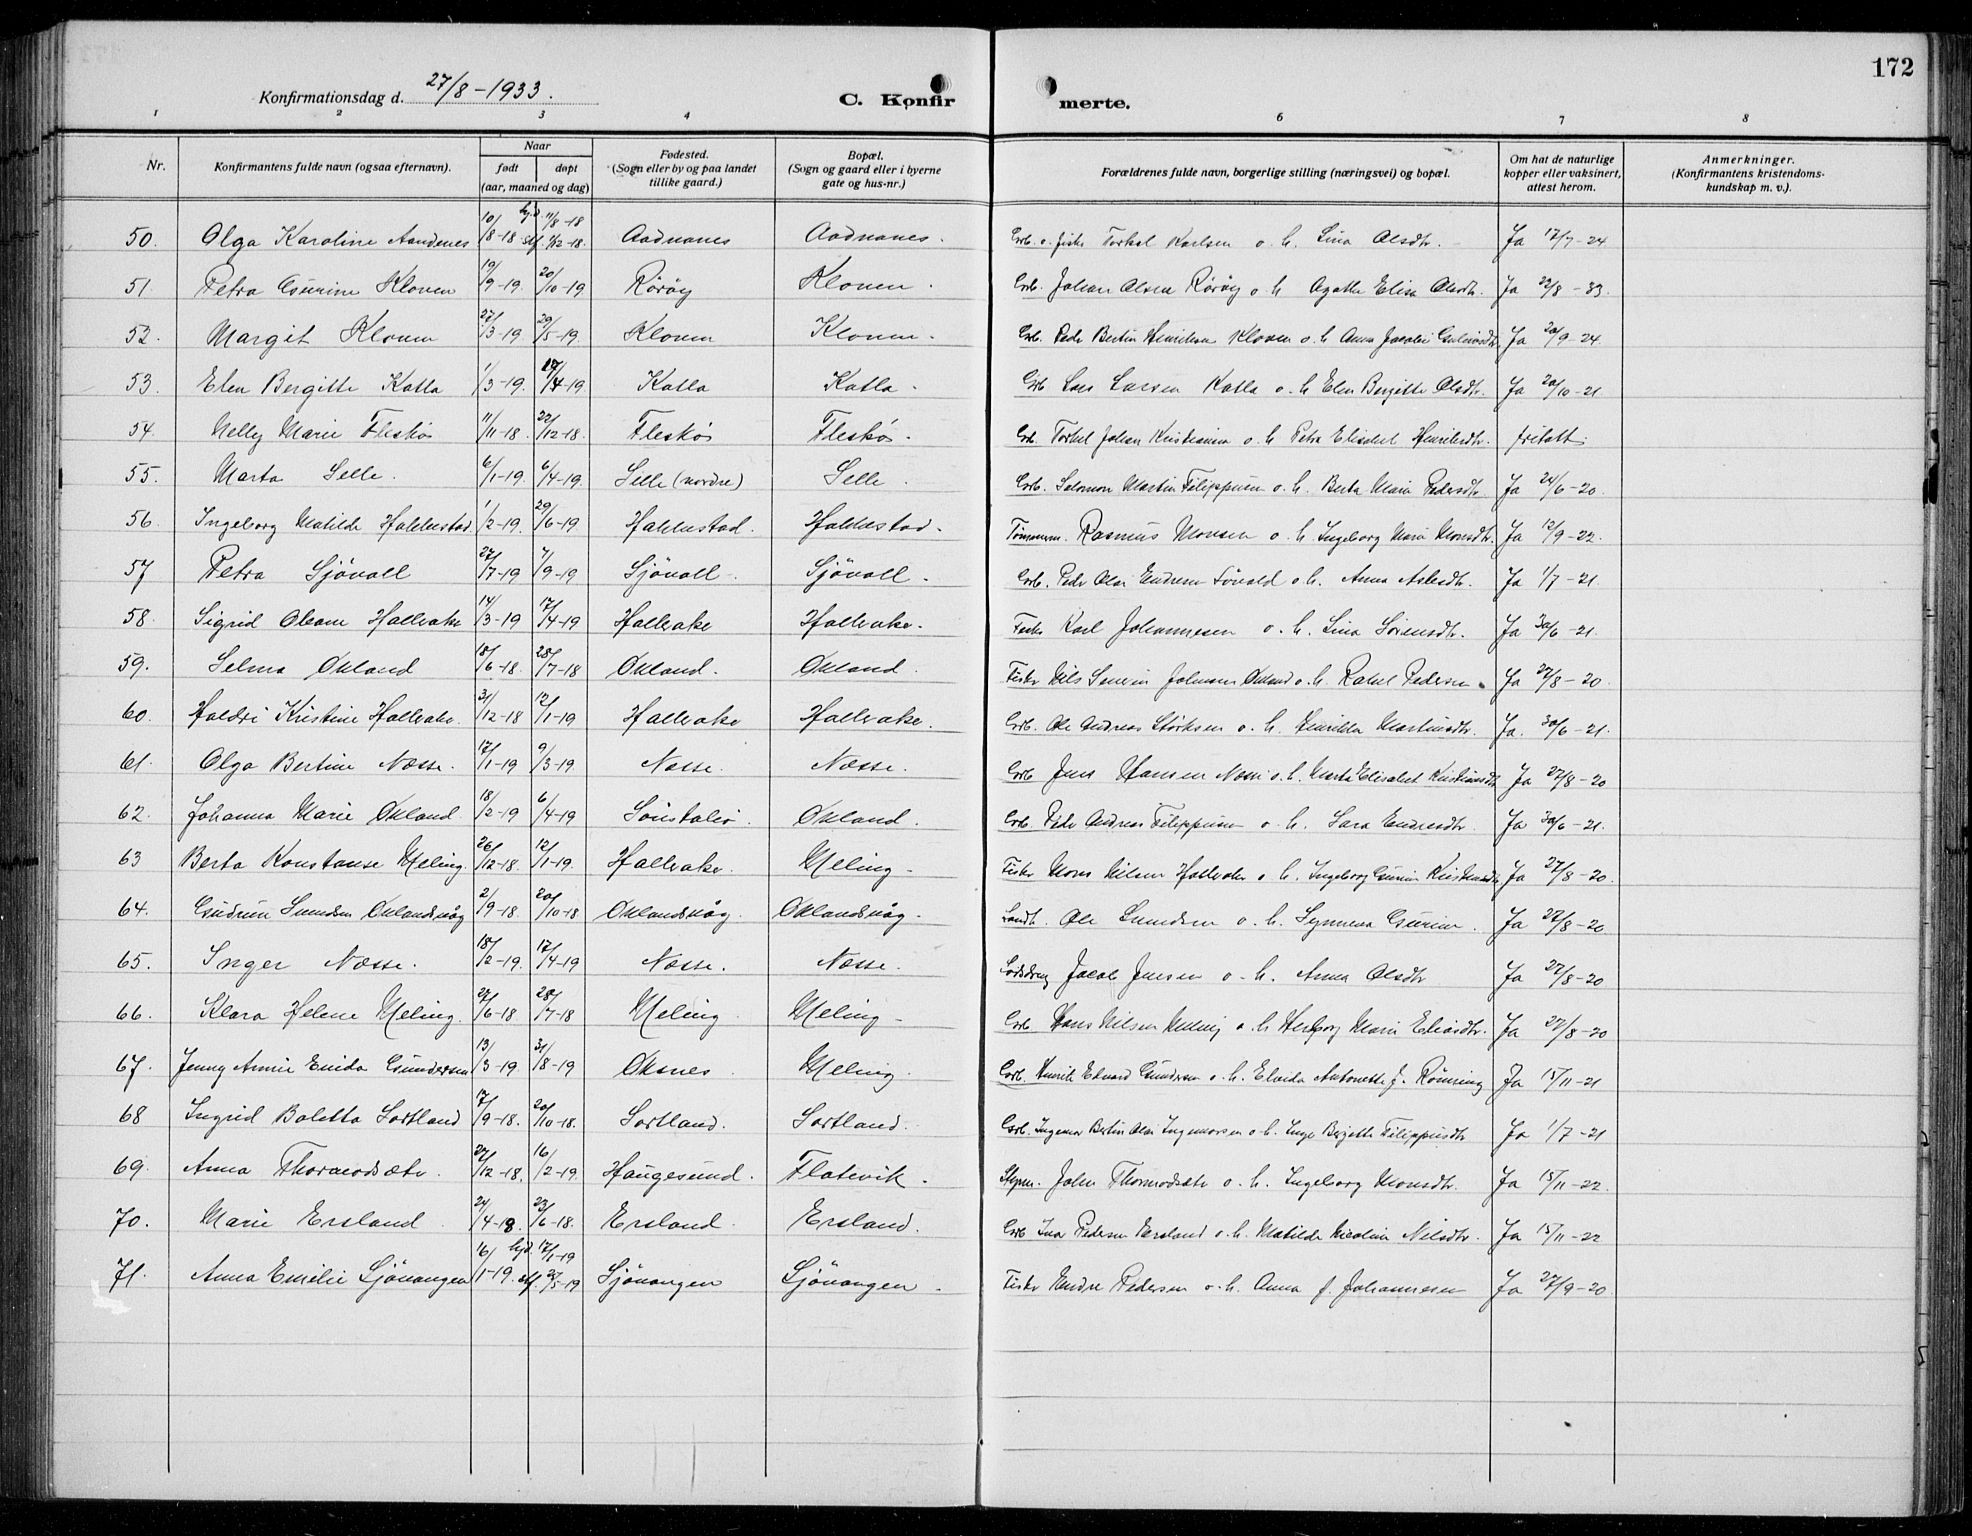 172
Konfirmationsdag d. 27/8 - 1933.
C. Konfir merte.
1 2 3 4 6 7 8
Nr. Konfirmantens fulde navn (ogsaa efternavn). Naar født døpt (aar, maaned og dag) Fødested. (Sogn eller by og paa landet tillike gaard.) Bopæl. (Sogn og gaard eller i byerne gate og hus-nr.) Forældrenes fulde navn, borgerlige stilling (næringsvei) og bopæl. Om hat de naturlige kopper eller vaksinert, attest herom. Anmerkninger. (Konfirmantens kristendomskundskap m. v.).
50. Olga Karoline Aandenes 10/8-18 hjd. 11/8-18 stf. 1/12-18. Aadnanes Aadnanes. Grb. o. fisk. Torkel Karlsen o. h. Lina Olsdtr. Ja 17/7-24
51. Petra Gurine Kloven 19/9-19. 20/10-19 Rörøy Kloven. Grb. Johan Olsen Rörøy o. h. Agathe Elise Olsdtr. Ja 22/8-33.
52. Margit Kloven 27/3-19 29/5-19. Kloven Kloven. Grb. Peder Bertin Henriksen Kloven o. h. Anna Jacobi Ja 20/9-24.
53. Elen Bergitte Katla 1/3-19. 17/4-19 Katla Katla. Grb. Lars Larsen Katla o. h. Elen Bergitte Olsdtr. Ja 20/10-21
54. Nelly Marie Fleskø 11/11-18. 22/12-18. Fleskø Fleskø. Grb. Torkel Johan Kristiansen o. h. Petra Elisabet Henriksdtr. fritatt.
55. Marta Selle. 6/1-19. 6/4-19. Selle (nordre) Selle. Grb. Salomon Martin Filippusen o. h. Berta Marie Pedersdtr. Ja 24/6-20.
56. Ingeborg Matilde Hakkestad. 1/2-19. 29/6-19 Hakkestad. Hakkestad. Tømmerm. Rasmus Monsen o. h. Ingeborg Marie Monsdtr. Ja 12/9-22.
57 Petra Sjövoll 27/7-19 7/9-19 Sjövoll. Sjövoll. Grb. Peder Olai Endresen o. h. Anna Aslesdtr. Ja 1/7-21.
58. Sigrid Oleane Halleraker 14/3-19 17/4-19 Halleraker Halleraker. Fisker Karl Johannesen o. h. Lina Sørensdtr. Ja 30/6-21.
59. Selma Økland 18/6-18. 28/7-18 Økland. Økland. Fisker Nils Severin Johnsen Økland o. h. Rakel Pedersen Ja 27/8-20.
60. Haldri Kristine Halleraker. 31/12-18 12/1-19 Halleraker Halleraker. Grb. Ole Andreas Størksen o. h. Henrikka Martinsdtr. Ja. 30/6-21.
61. Olga Bertine Næsse. 17/1-19 9/3-19 Næsse. Næsse. Grb Jens Hansen Næsse o. h. Marta Elisabet Kristiansdtr. Ja 27/8-20
62. Johanna Marie Økland. 18/2-19 6/4-19 Sönstabø. Økland. Grb. Peder Andreas Filippusen o. h. Sara Endresdtr. Ja 30/6-21.
63 Berta Konstanse Meling. 26/12-18. 12/1-19. Halleraker. Meling. Fisker Mons Nilsen Halleraker o. h. Ingeborg Gurine Ja 27/8-20.
64. Gudrun Økland­svåg 2/9-18. 20/10-18 Øklandsvåg. Øklandsvåg. Landh. Ole o. h. Synneva Gurine. Ja 27/8-20
65. Inger Næsse. 18/2-19. 17/4-19 Næsse. Næsse. Jacob Jensen o. h. Anna Olsdtr Ja 27/8-20
66. Klara Helene Meling. 27/6-18 28/7-18 Meling Meling Grb. Hans Nilsen Meling o. h. Herborg Marie Eliasdtr. Ja 27/8-20
67. Jenny Annie Gundersen 13/3-19. 31/8-19 Øksnes Meling. Grb. Henrik Edvard Gundersen o. h. Elvida Antonette J. Ja 15/11-21
68 Ingrid Boletta Sortland 7/9-18. 20/10-18. Sortland. Sortland. Grb. Ingemar Bertin Olai Ingemarsen o. h. Inga Bergitte Filippusdtr Ja 1/7-21
69. Anna Thormodsæter. 27/12-18. 16/2-19. Haugesund. Flatevik. John Thormodsæter o. h. Ingeborg Monsdtr. Ja 15/11-22.
70. Marie Ersland. 24/4-18. 23/6-18. Ersland. Ersland. Grb Ivar Pedersen Ersland o. h. Matilde Nicoline Nilsdtr. Ja 15/11-22
71. Anna Emilie Sjövangen 16/1-19. hjd. 17/1-19 stf. Sjövangen Sjövangen. Fisker Endre Pedersen o. h. Anna f. Johannesen Ja 27/9-20.